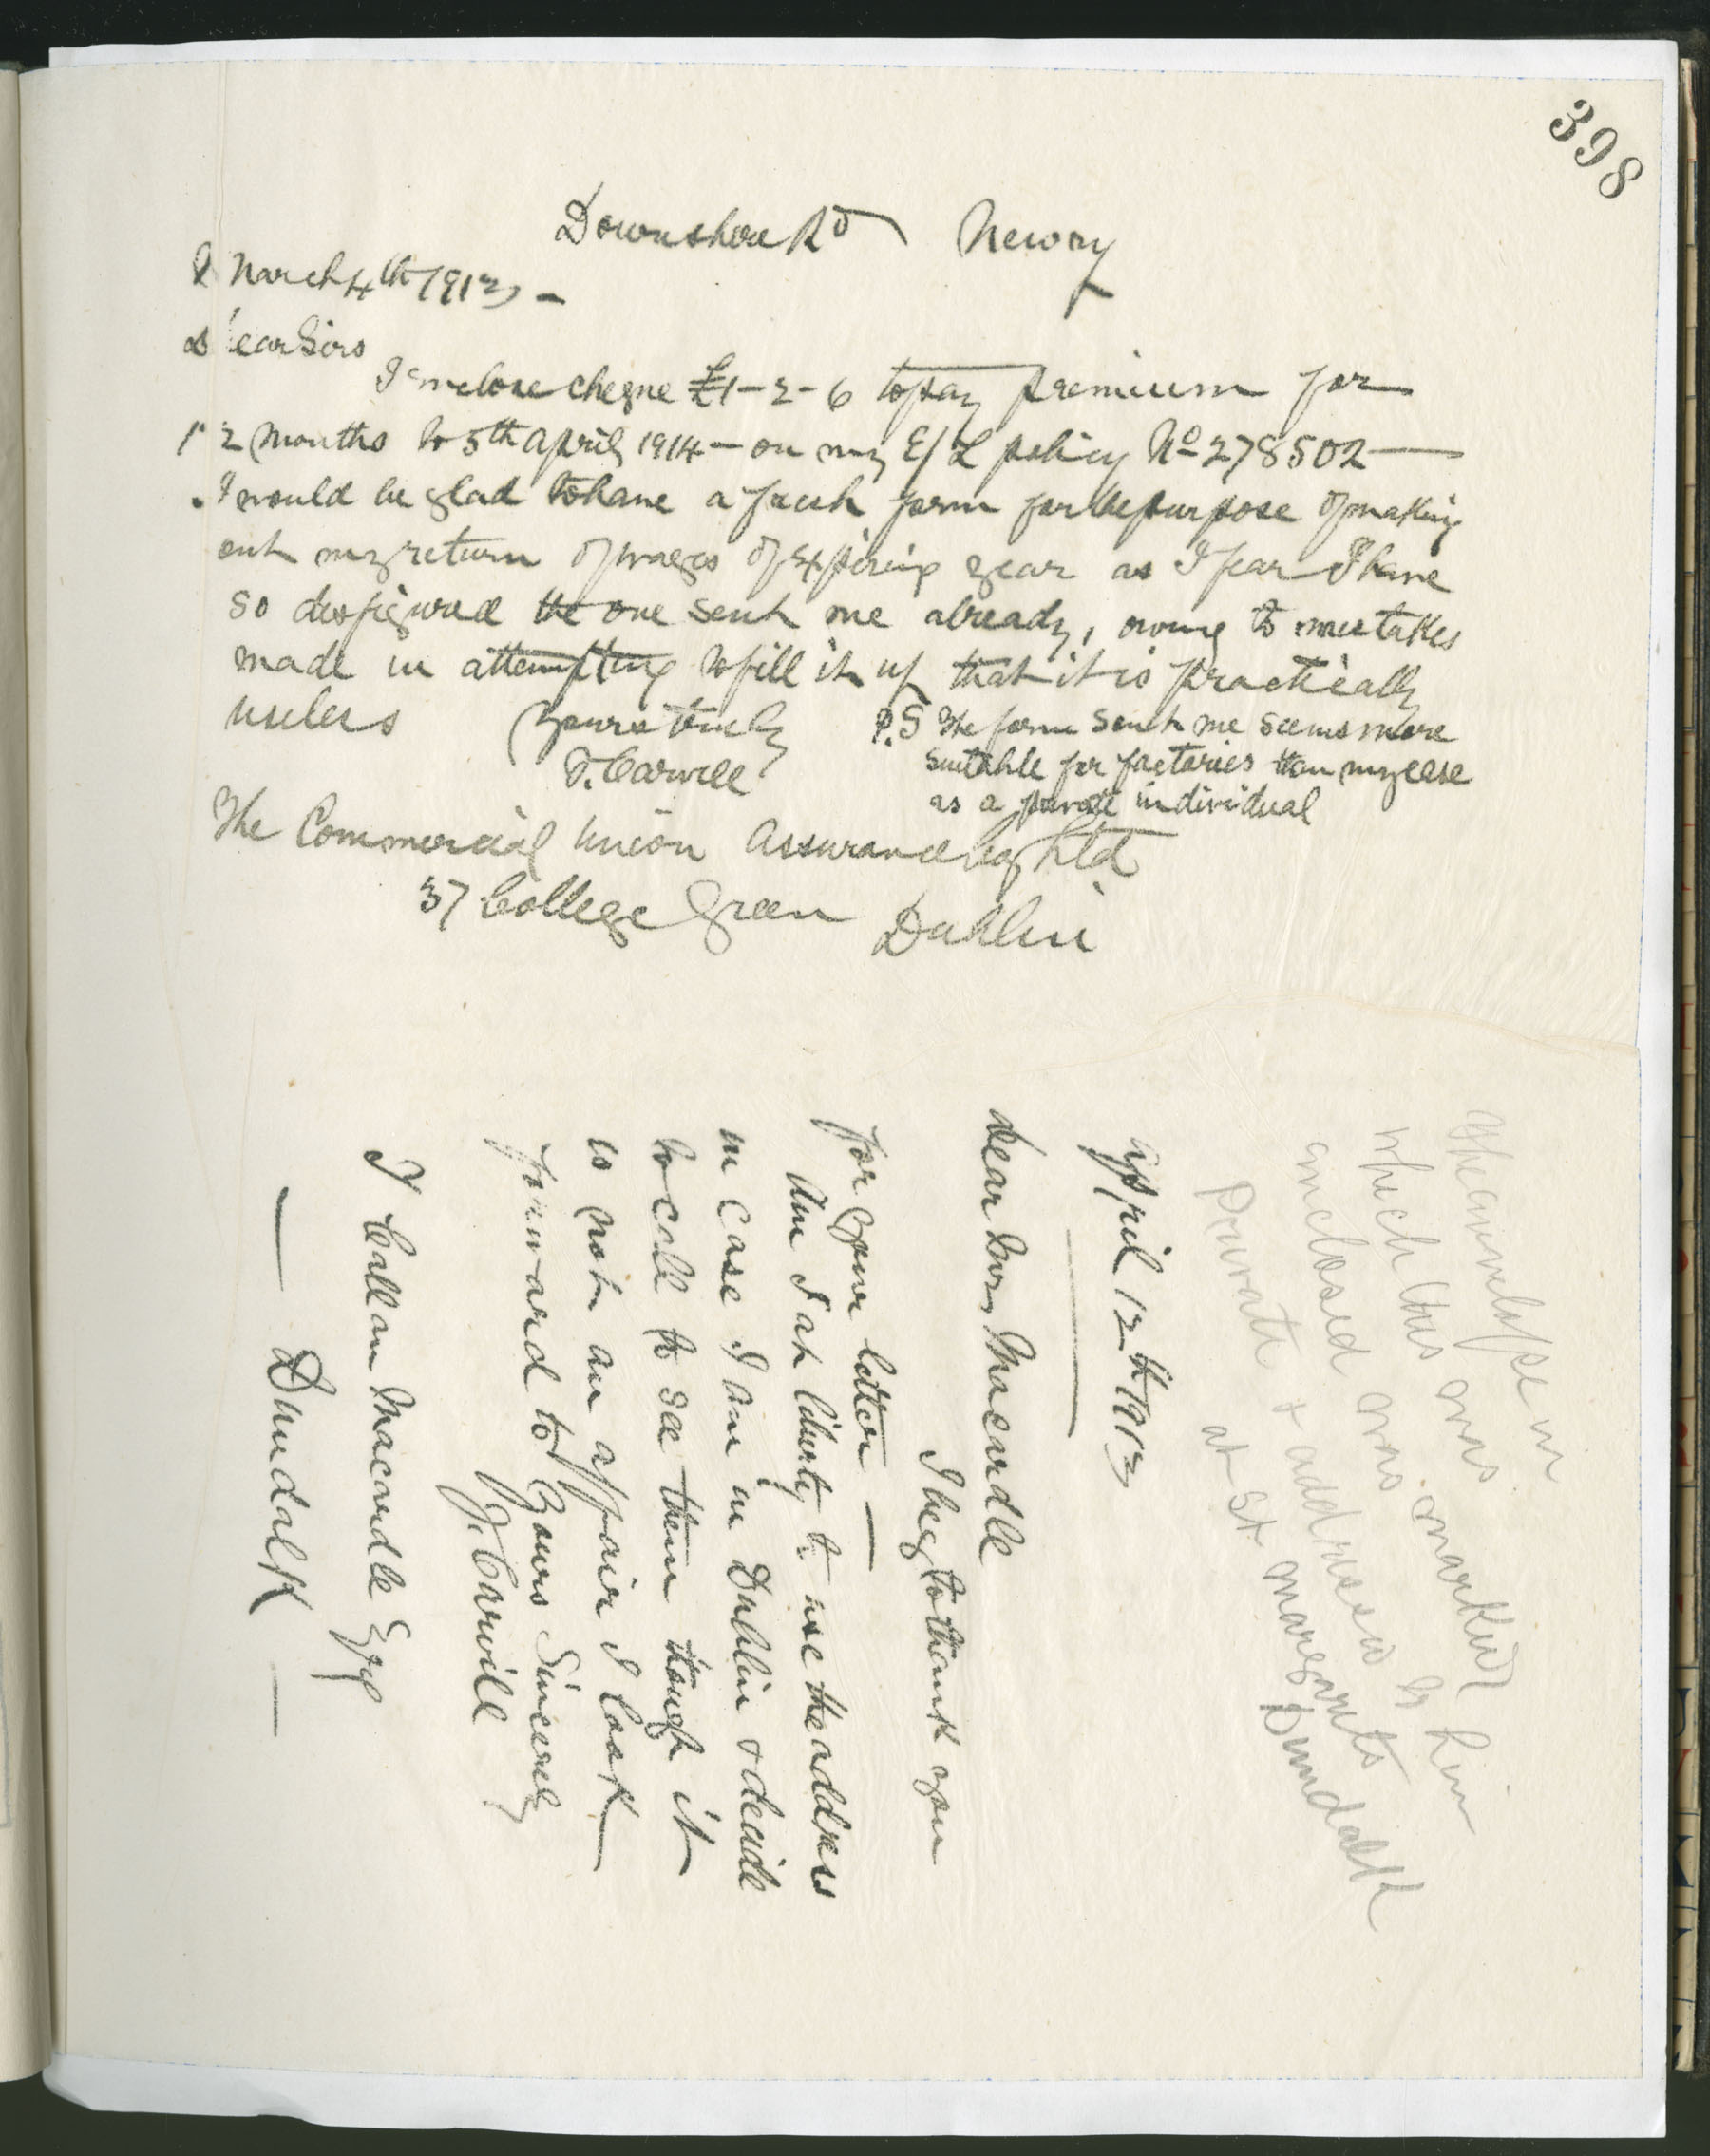 398
Downshire Rd Newry
March 4th 1913 -
Dear Sirs
I enclose cheque £1-2-6 to pay premium for
12 months to 5th April 1914 - on my E/L policy No 278502 -
I would be glad to have a fresh form for the purpose of making
out my return of wages of expiring year as I fear I have
so disfigured the one sent me already, owing to mistakes
made in attempting to fill it up that it is practically
useless Yours truly
P.S The form sent me seems more
suitable for factories than my case
as a private individual
J. Carvill
The Commercial Union Assurance Coy Ltd
37 College Green Dublin
The envelope in
which this was
enclosed was marked
Private & addressed to him
at St Margarets
Dundalk
April 12th 1913
Dear Mr Macardle
I beg to thank you
for your letter -
Am I at liberty to use the address
in case I am in Dublin & decide
to call to see them though it
is not an affair I look
forward to Yours Sincerely
J. Carvill
T Callan Macardle Esq
- Dundalk -